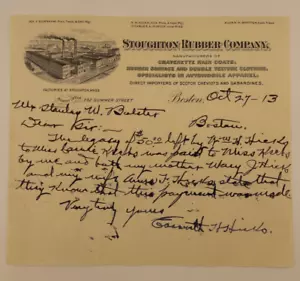 STOUGHTON RUBBER COMPANY,
MANUFACTURERS OF
CRAVENETTE RAIN COATS,
SINGLE SURFACE AND DOUBLE TEXTURE CLOTHING,
SPECIALISTS IN AUTOMOBILE APPAREL,
DIRECT IMPORTERS OF SCOTCH CHEVIOTS AND GABARDINES.
FACTORIES AT STOUGHTON, MASS.
SUMMER STREET
Boston, Oct 27-13
Mr Stanley W.
Boston.
Dear Sir:-
The legacy of $50.00 left by Wm H. Hicks
to Miss Hicks was paid to Miss Hicks
by me, and both my mother Mary J Hicks
and my wife Annie F. Hicks state that
they know that this payment was made
Very truly yours
Hicks.